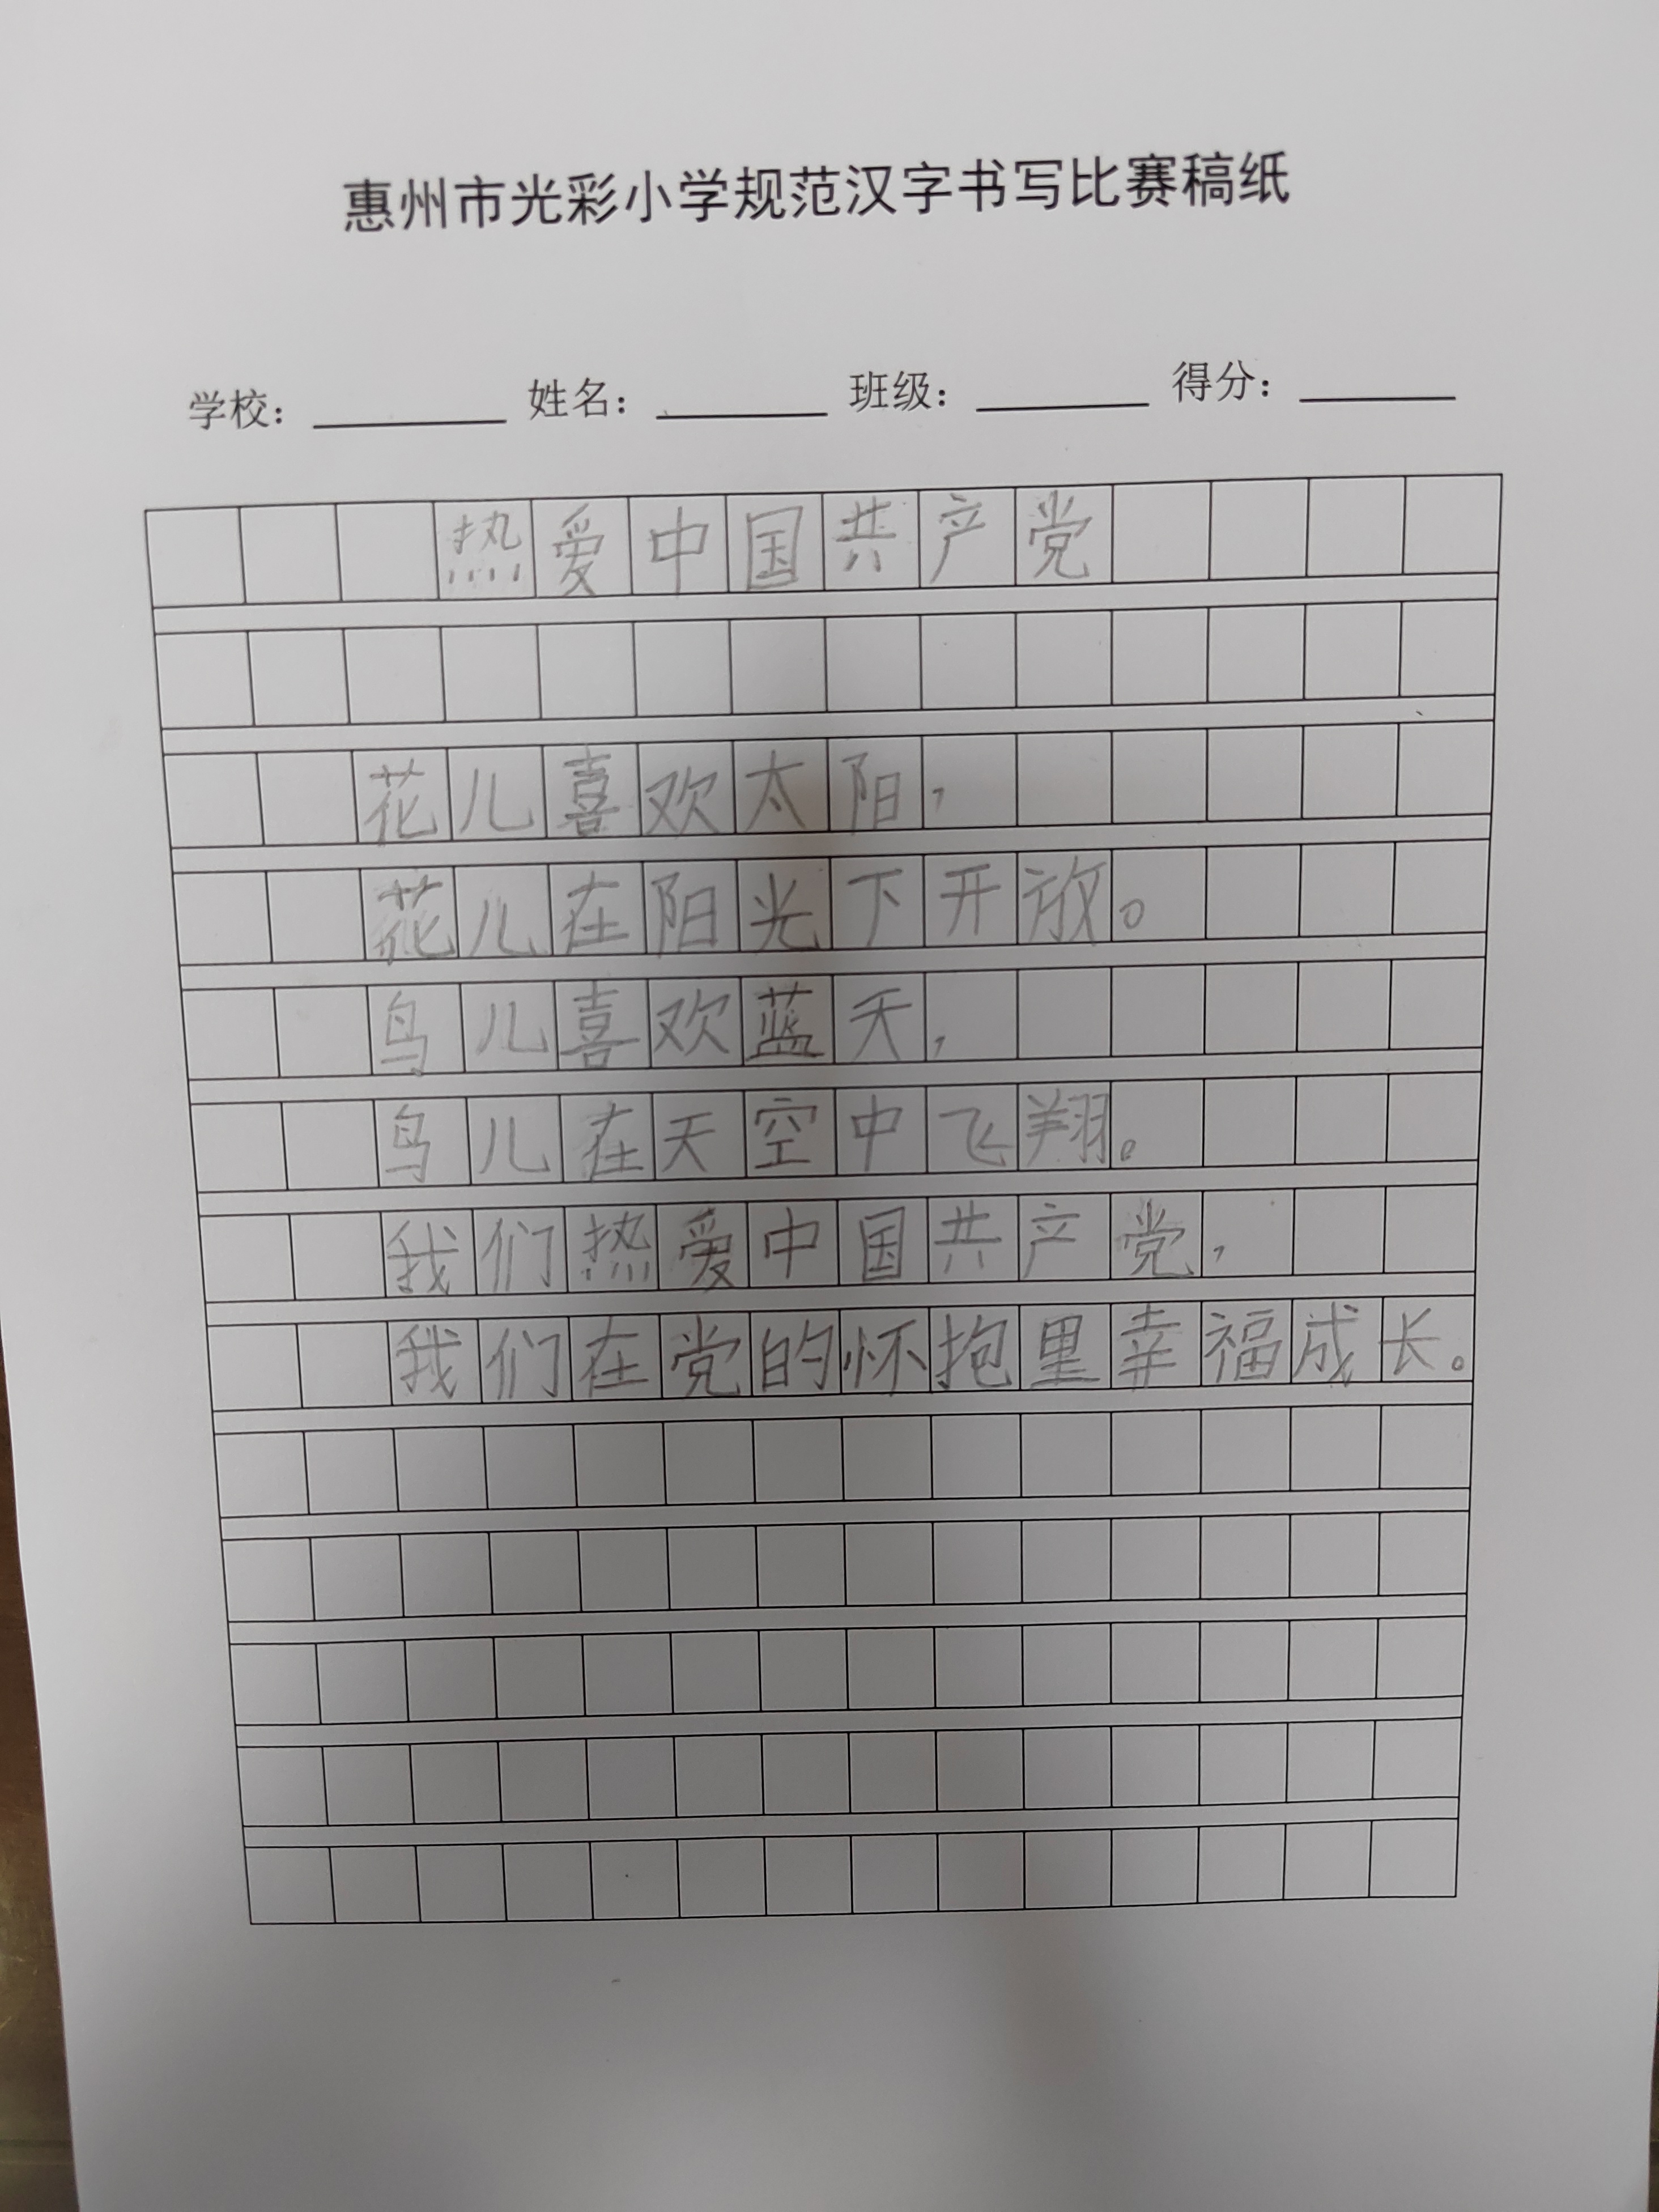 惠州市光彩小学规范汉字书写比赛稿纸
学校： 姓名： 班级： 得分：
热爱中国共产党
花儿喜欢太阳，
花儿在阳光下开放。
鸟儿喜欢蓝天，
鸟儿在天空中飞翔。
我们热爱中国共产党，
我们在党的怀抱里幸福成长。